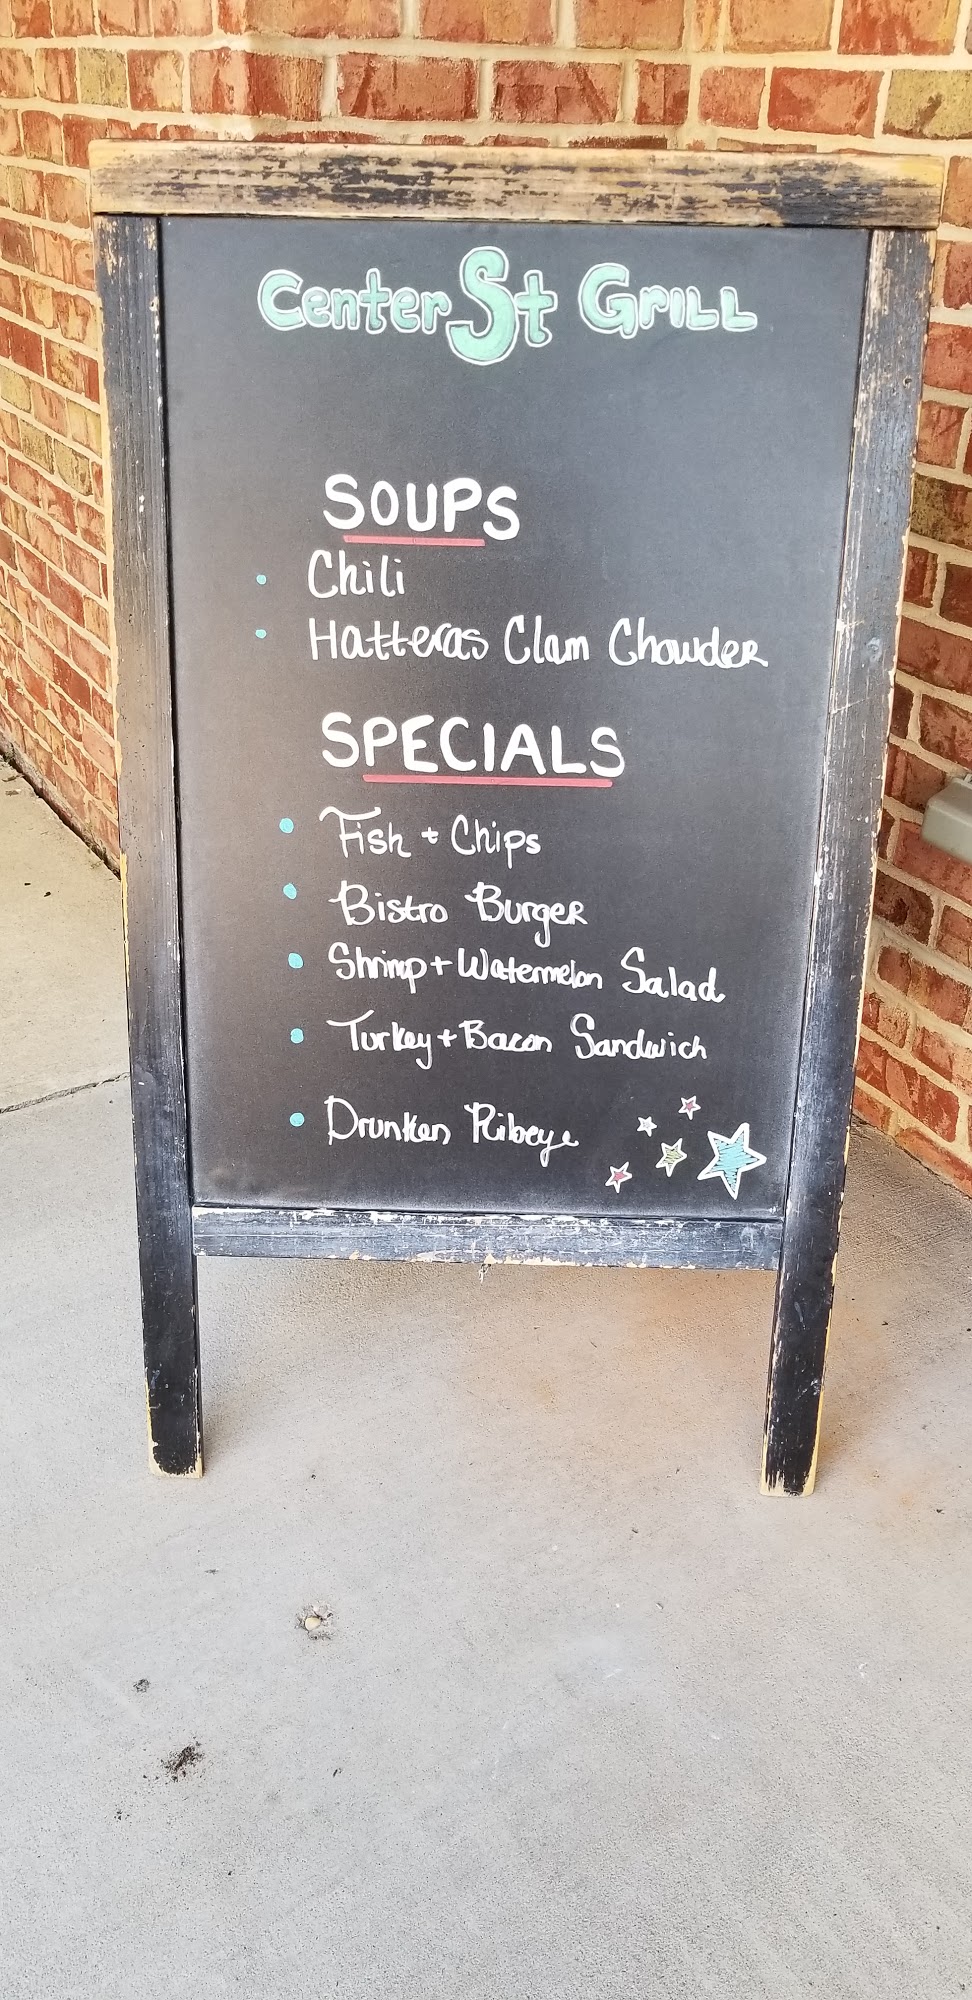 Center St Grill
SOUPS
• Chili
• Hatteras Clam Chowder
SPECIALS
• Fish + Chips
• Bistro Burger
• Shrimp + Watermelon Salad
• Turkey + Bacon Sandwich
• Drunken Ribeye